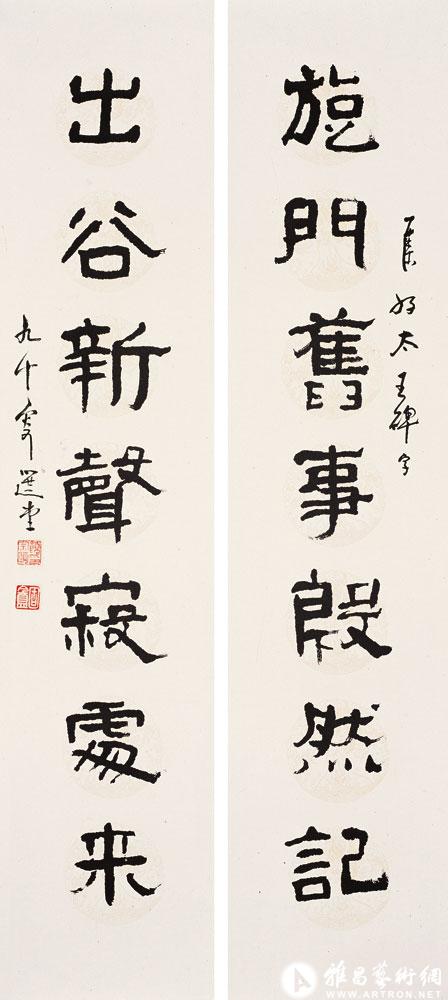 集好太王碑字
門舊事殷然記
出谷新聲寂處来
九十叟選堂
雅昌藝術網
WWW.ARTRON.NET